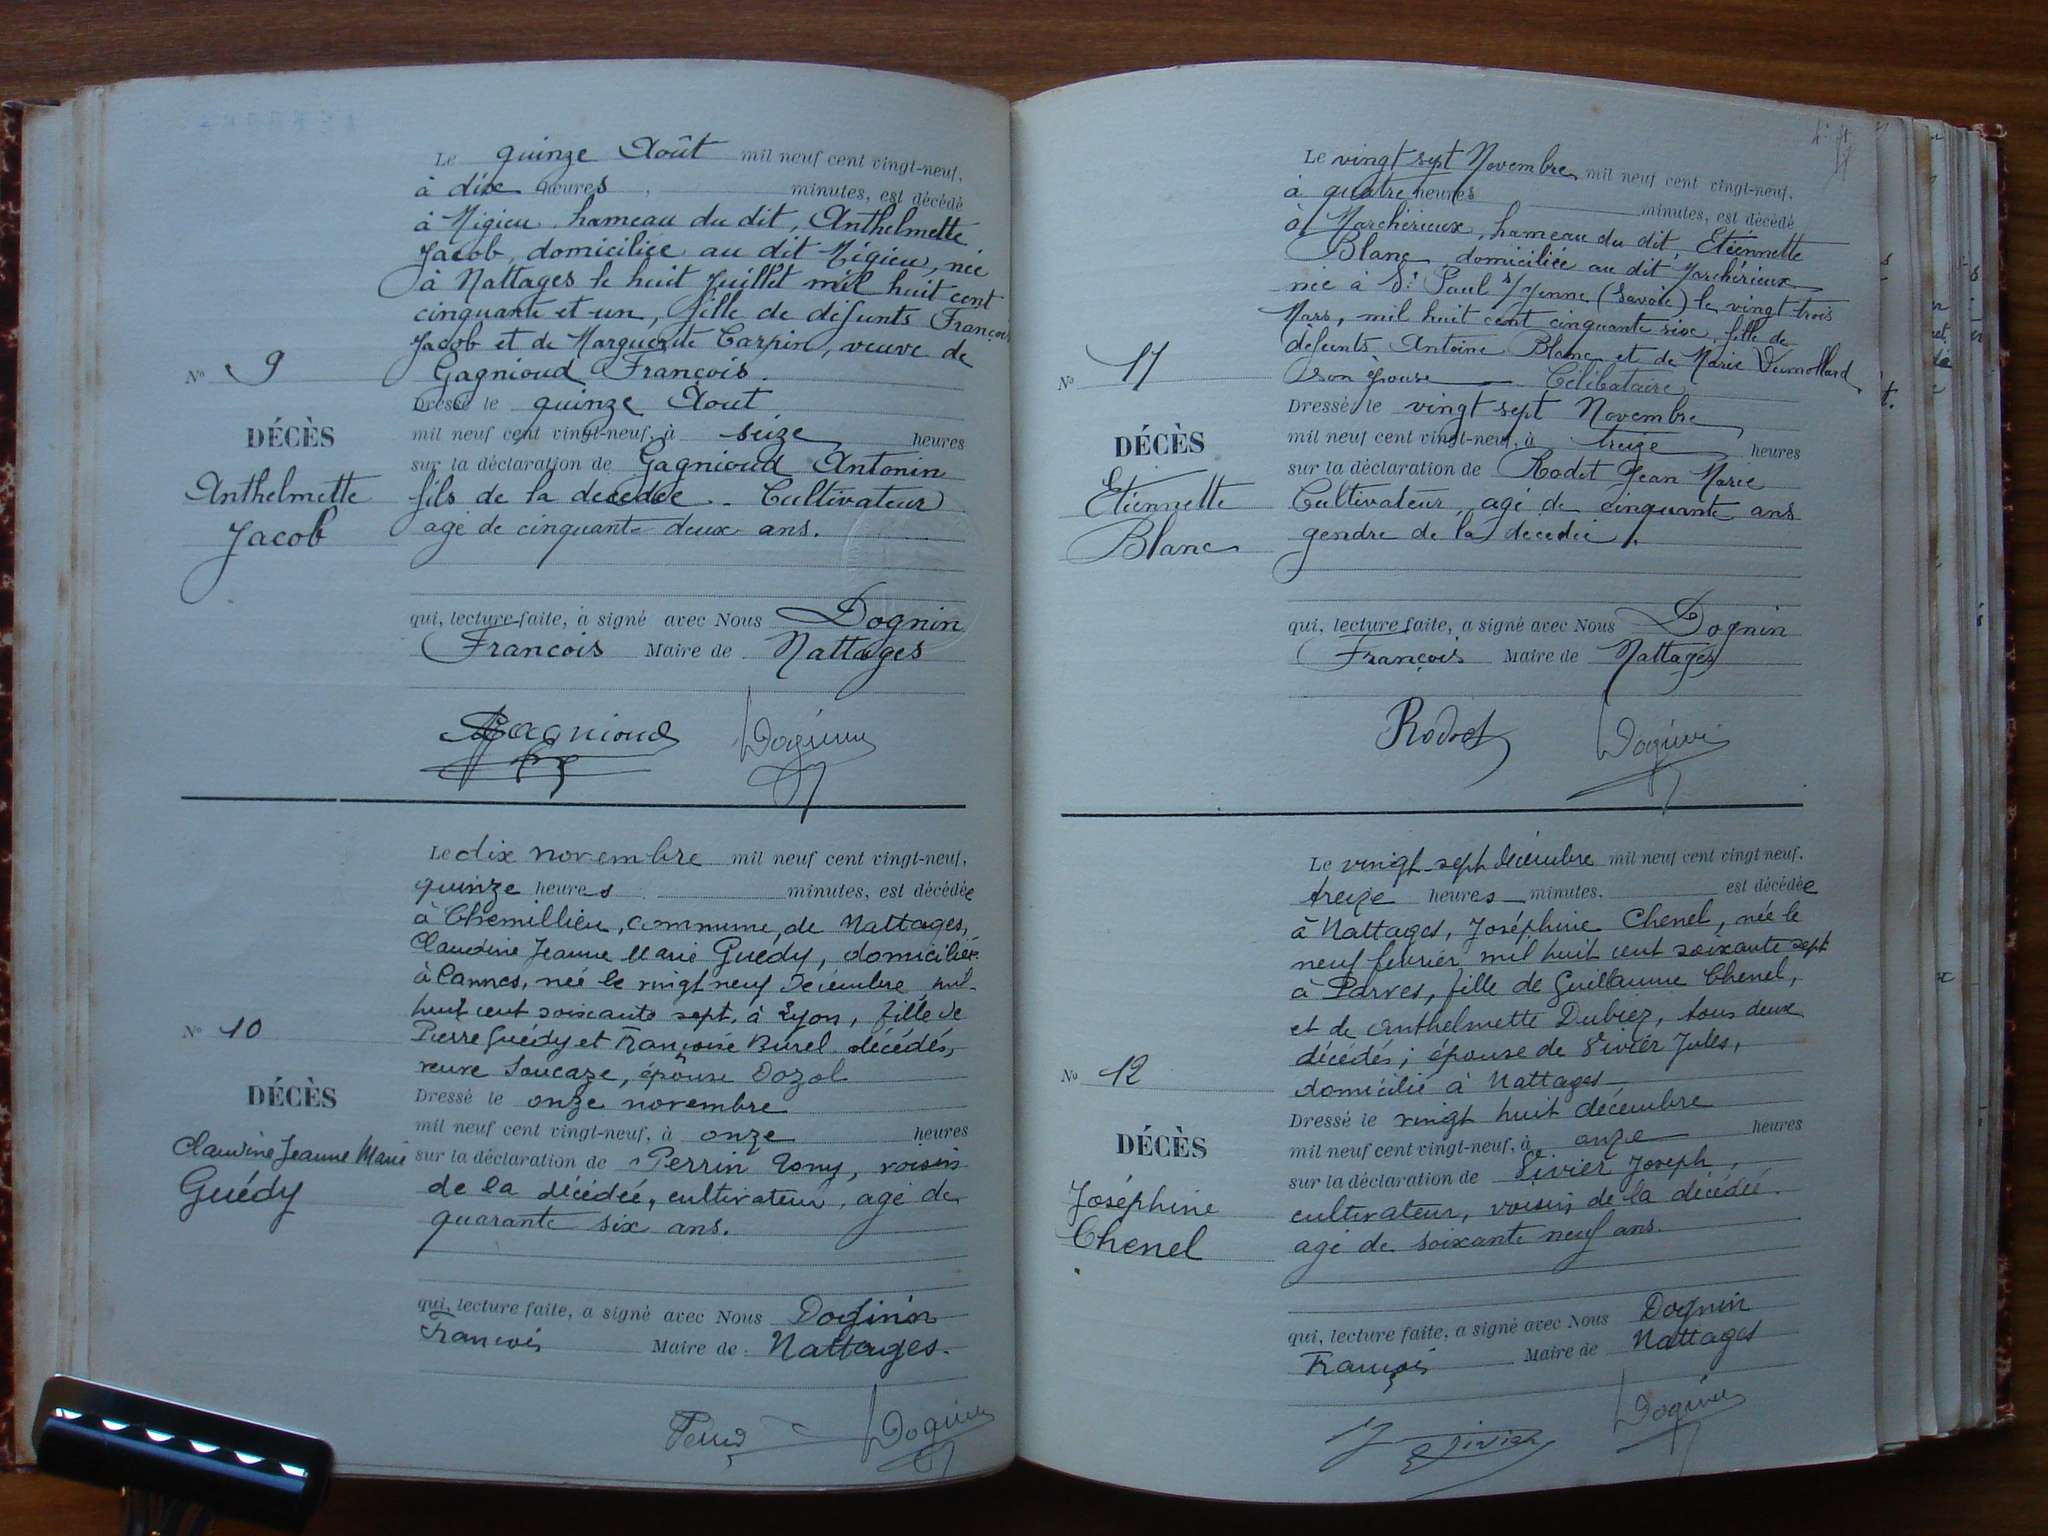 Le quinze Août mil neuf cent vingt-neuf,
à dix heures, minutes, est décédé
à Migieu, hameau du dit, Anthelmette
Jacob, domiciliée au dit Migieu, née
à Nattages le huit Juillet mil huit cent
cinquante et un, fille de défunts François
Jacob et de Marguerite Carpin, veuve de
Gagnioud François.
Nº 9
Dressé le quinze Aout
mil neuf cent vingt-neuf, à seize heures
DÉCÈS
sur la déclaration de Gagnioud Antonin
Anthelmette
fils de la décédée. Cultivateur
Jacob
agé de cinquante deux ans.
qui, lecture faite, a signé avec Nous Dognin
François Maire de Nattages
Gagnioud Dognin
Le dix novembre mil neuf cent vingt-neuf,
quinze heures minutes, est décédée
à Chemillieu, commune, de Nattages,
Claudine Jeanne Marie Guédy, domiciliée
à Cannes, née le vingt neuf Décembre mil
huit cent soixante sept, à Lyon, fille de
Pierre Guédy et Françoise Burel décédés,
veuve Soucaze, épouse Dozol
Nº 10
Dressé le onze novembre
mil neuf cent vingt-neuf, à onze heures
DÉCÈS
sur la déclaration de Perrin Tony, voisin
Claudine Jeanne Marie
de la décédée, cultivateur, agé de
Guédy
quarante six ans.
qui, lecture faite, a signé avec Nous Dognin
François Maire de Nattages.
Dognin
Le vingt sept Novembre mil neuf cent vingt-neuf,
à quatre heures minutes, est décédé
à Marchérieux, hameau du dit, Etiennette
Blanc, domiciliée au dit Marchérieux
née à St Paul s/Yenne (Savoie) le vingt trois
Mars, mil huit cent cinquante six, fille de
défunts Antoine Blanc et de Marie Dumollard
son épouse Célibataire
Nº 11
Dressé le vingt sept Novembre
mil neuf cent vingt-neuf, à treize heures
DÉCÈS
sur la déclaration de Rodet Jean Marie
Etiennette
Cultivateur, agé de cinquante ans
Blanc
gendre de la décédée.
qui, lecture faite, a signé avec Nous Dognin
François Maire de Nattages
Rodet Dognin
Le vingt-sept décembre mil neuf cent vingt neuf.
treize heures minutes. est décédée
à Nattages, Joséphine Chenel, née le
neuf février mil huit cent soixante sept
à Parves, fille de Guillaume Chenel,
et de Anthelmette Dubiez, tous deux
décédés; épouse de Sivier Jules,
domicilié à Nattages
Nº 12
Dressé le vingt huit décembre
mil neuf cent vingt-neuf, à onze heures
DÉCÈS
sur la déclaration de Sivier Joseph,
Joséphine
cultivateur, voisin de la décédée.
Chenel
agé de soixante neuf ans.
qui, lecture faite, a signé avec Nous Dognin
François Maire de Nattages
Sivier Dognin